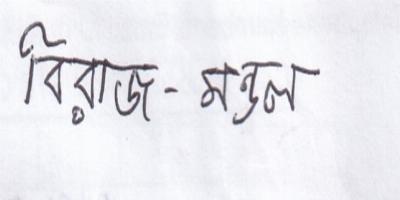 বিরাজ - মন্ডল